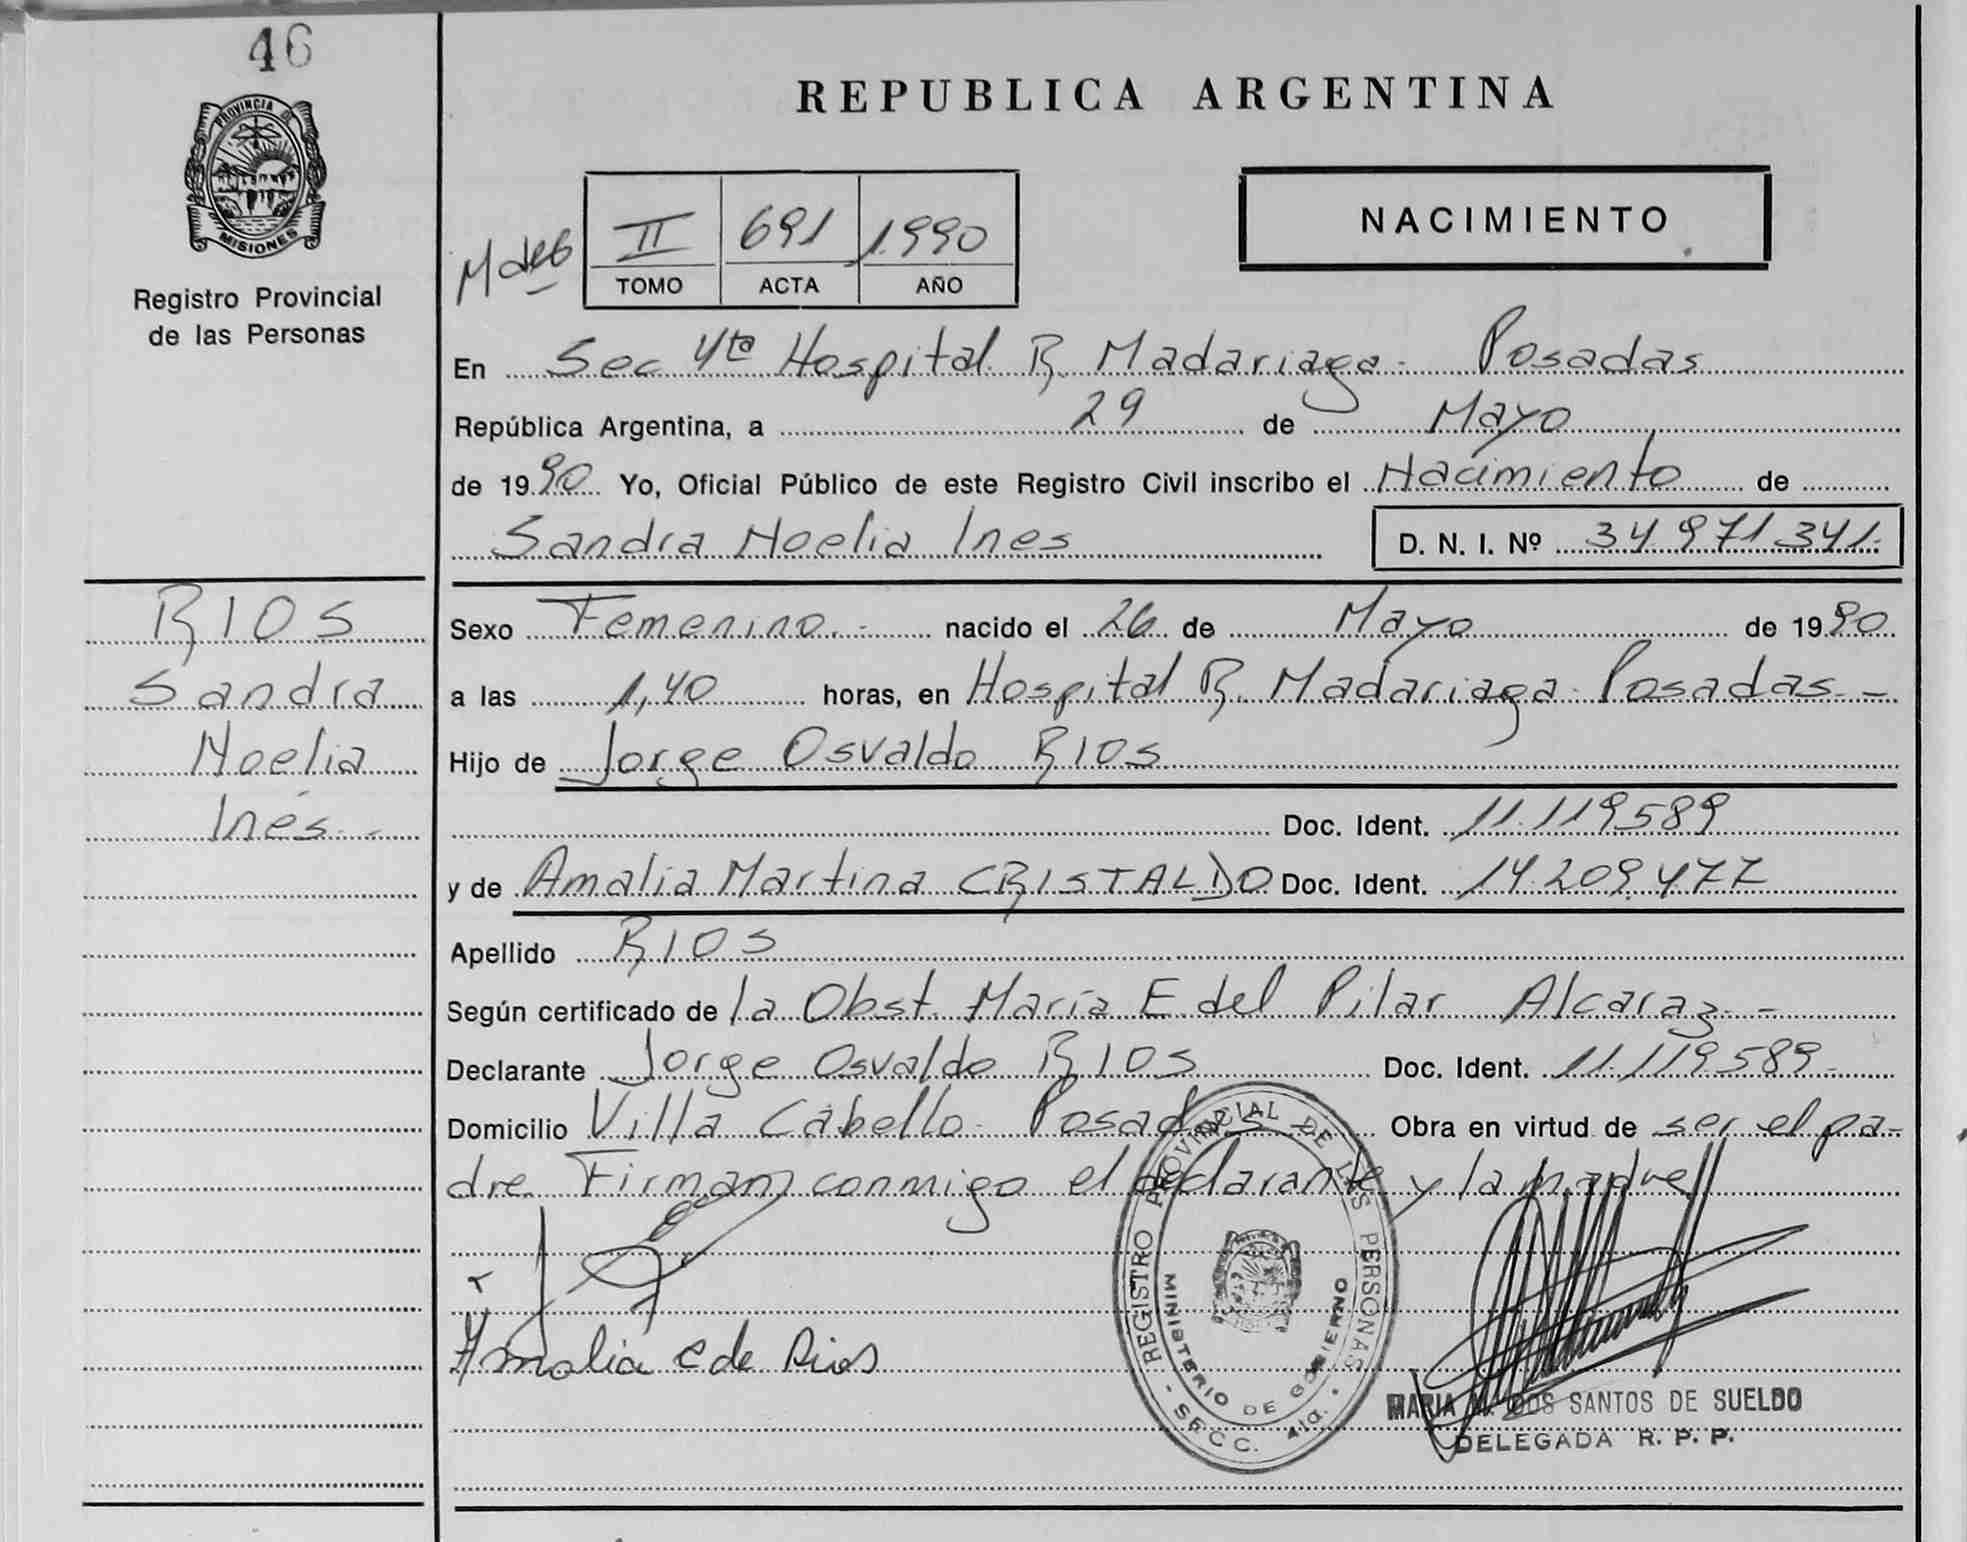 46
PROVINCIA DE
MISIONES
Registro Provincial
de las Personas
RIOS
Sandra
Noelia
Inés.-
REPUBLICA ARGENTINA
NACIMIENTO
II 691 1990
TOMO ACTA AÑO
En Sec 4ta Hospital R. Madariaga- Posadas
República Argentina, a 29 de Mayo
de 1990 Yo, Oficial Público de este Registro Civil inscribo el Nacimiento de
Sandra Noelia Ines
D. N. I. Nº 34.971.341.-
Sexo Femenino.- nacido el 26 de Mayo de 1990
a las 1,40 horas, en Hospital R. Madariaga- Posadas.-
Hijo de Jorge Osvaldo RIOS
Doc. Ident. 11.119.589
y de Amalia Martina CRISTALDO Doc. Ident. 14.209.477
Apellido RIOS
Según certificado de la Obst. María E. del Pilar Alcaraz.-
Declarante Jorge Osvaldo RIOS Doc. Ident. 11.119.589-
Domicilio Villa Cabello- Posadas - Obra en virtud de ser el pa-
dre. Firman conmigo el declarante y la madre
Amalia C de Rios
REGISTRO PROVINCIAL DE LAS PERSONAS
MINISTERIO DE GOBIERNO
- SECC. 4ta. -
MARIA DOS SANTOS DE SUELDO
DELEGADA R. P. P.